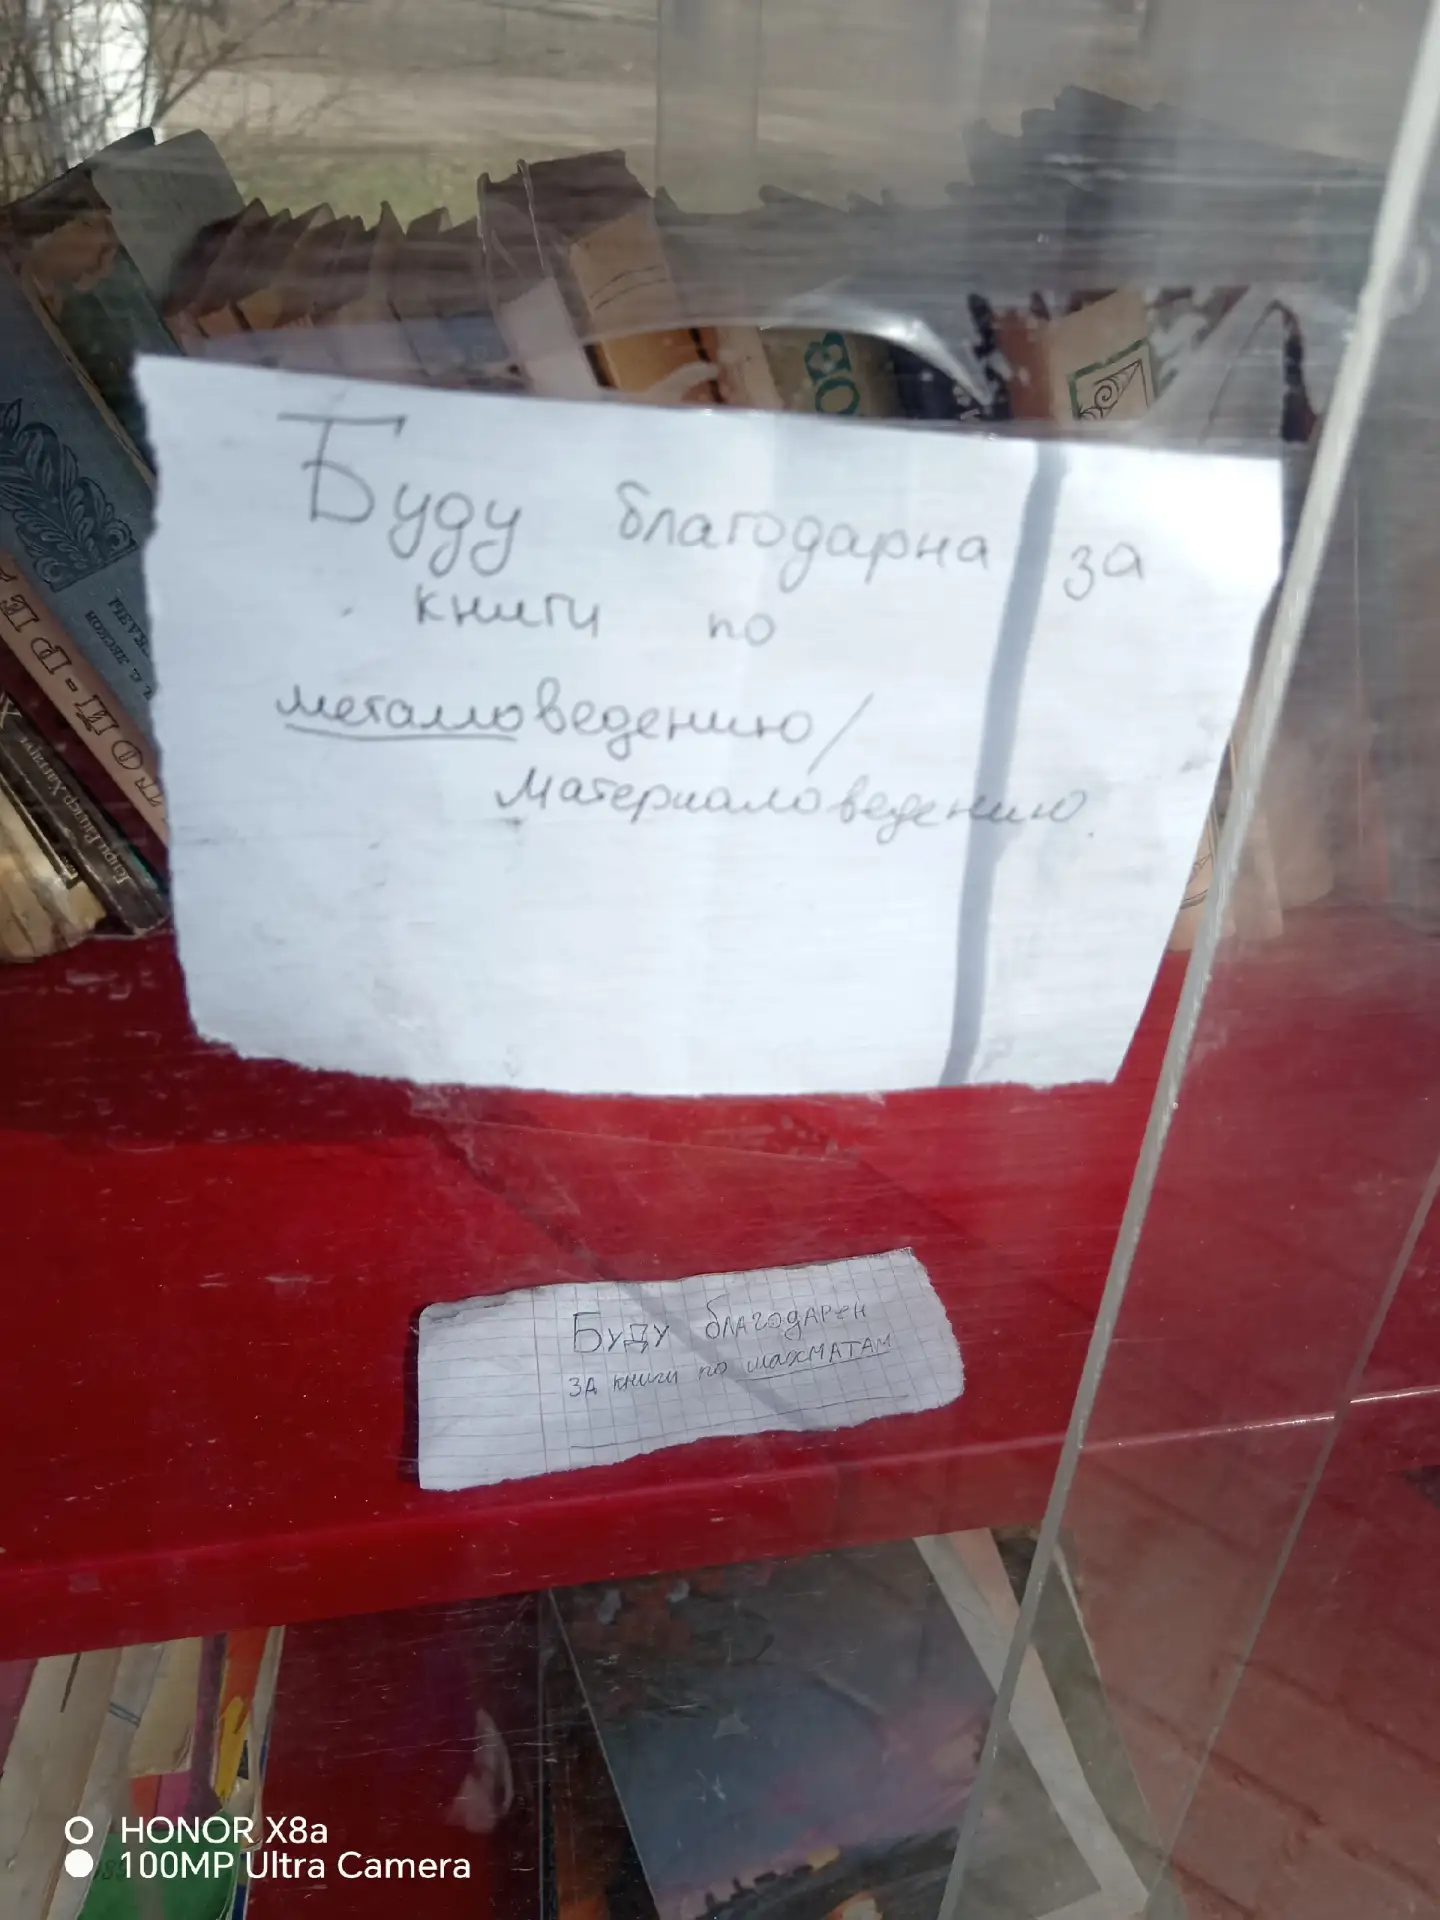 Буду благодарна за
книги по
металловедению/
материаловедению.
Буду благодарен
за книги по шахматам
HONOR X8a
100MP Ultra Camera